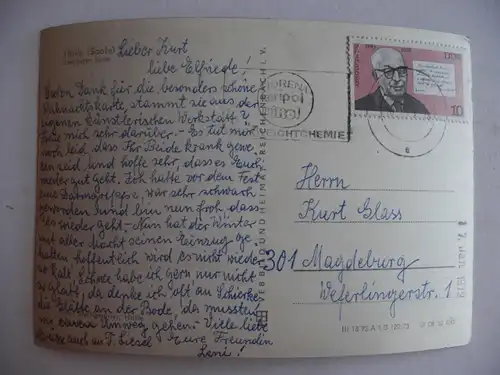 Halle (Saale)
Lieber Kurt
liebe Elfriede!
Vielen Dank für die besonders schöne
Weihnachtskarte, stammt sie aus der
eigenen künstlerischen Werkstatt?
Freue mich sehr darüber. - Es tut mir
noch leid, dass Ihr Beide krank gewe-
sen seid und hoffe sehr, dass es Euch
wieder gut geht. Ich hatte vor dem Fest
eine Darmgrippe, war sehr schwach
geworden und bin nun froh, dass
es wieder geht. - Nun hat der Winter
mit aller Macht seinen Einzug ge-
halten hoffentlich wird es nicht wieder
so kalt. Schnee habe ich gern nur nicht
so glatt, da denke ich oft an Schierke
die Glätte an der Bode, da mussten
wir einen Umweg gehen. Viele liebe
Grüsse auch an T. Liesel Eure Freundin
Leni!
VEB BILD UND HEIMAT REICHENBACH I. V.
LEICHTCHEMIE
DDR
10
Herrn
Kurt Glass
301 Magdeburg
Weferlingerstr. 1